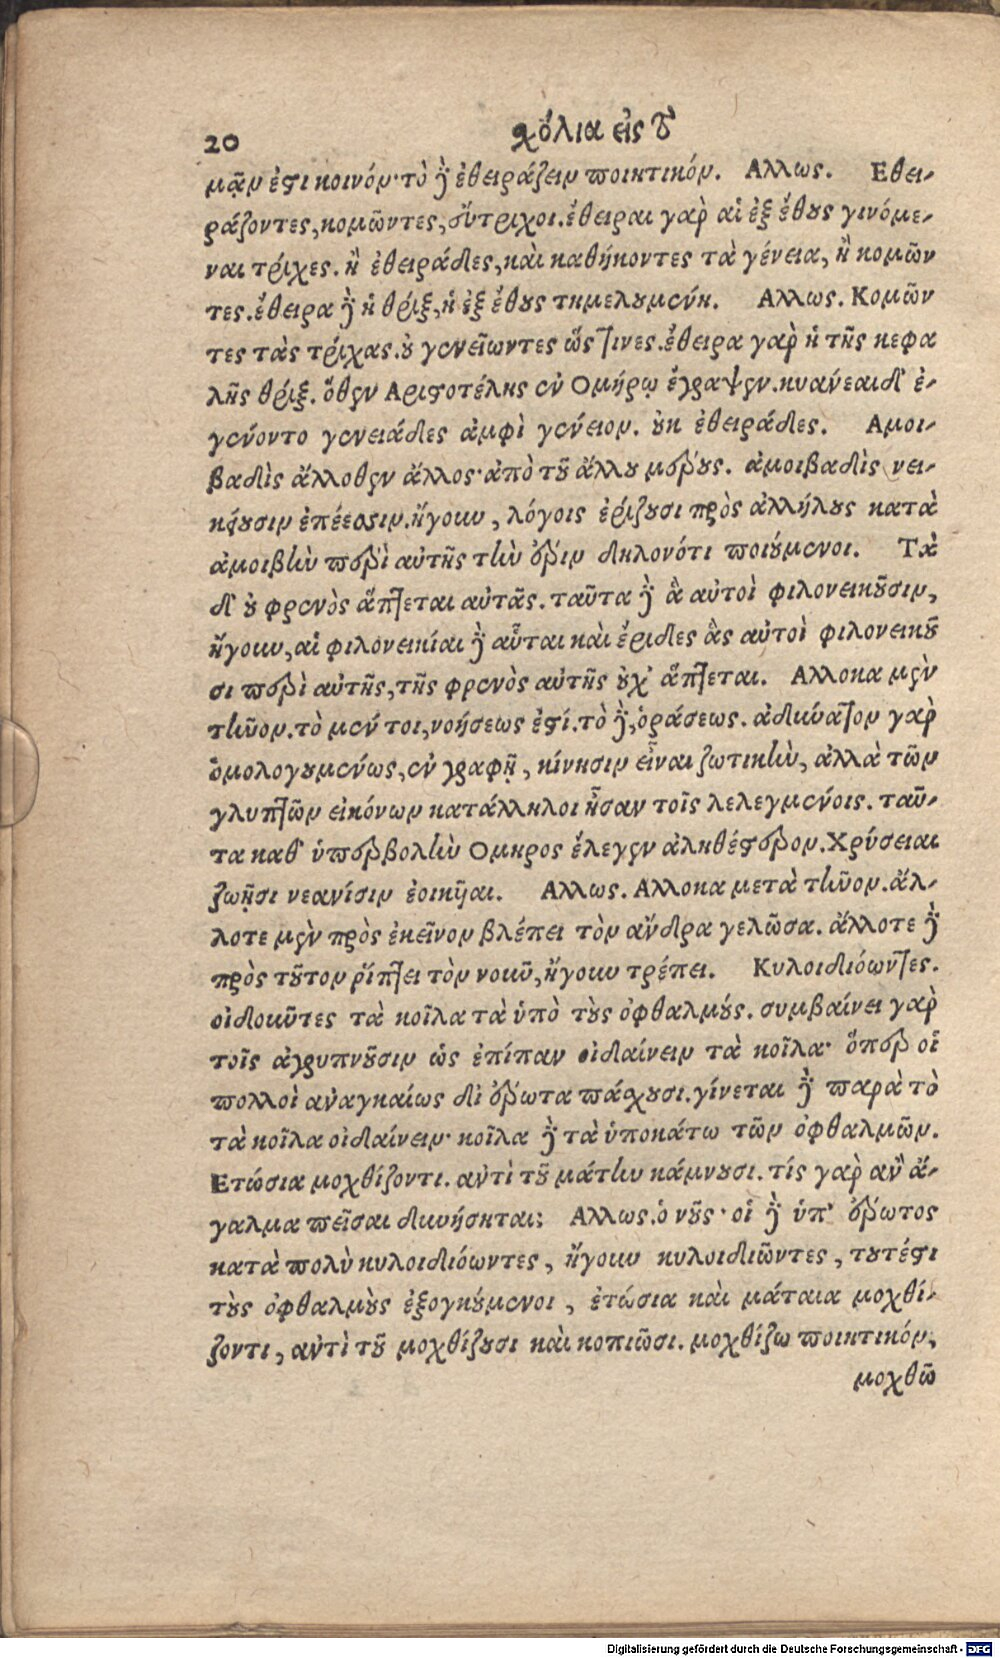 20
χόλια εἰς τ
μᾷν ἐστι κοινόν· τὸ δὲ ἐθειράζειν ποιητικόν. Αλλως. Εθει-
ράζοντες, κομῶντες, εὔτριχοι. ἔθειραι γὰρ αἱ ἐξ ἔθους γινόμε-
ναι τρίχες. ἢ ἐθειράδες, καὶ καθήκοντες τὰ γένεια, ἢ κομῶν
τες. ἔθειρα δὲ ἡ θρίξ, ἡ ἐξ ἔθους τημελουμένη. Αλλως. Κομῶν
τες τὰς τρίχας. οὐ γενειῶντες ὥς τινες. ἔθειρα γὰρ ἡ τῆς κεφα
λῆς θρίξ. ὅθεν Αριστοτέλης ἐν Ομήρῳ ἔγραψεν. κυανέαι δ' ἐ-
γένοντο γενειάδες ἀμφὶ γένειον. οὐκ ἐθειράδες. Αμοι-
βαδὶς ἄλλοθεν ἄλλος· ἀπὸ τοῦ ἄλλου μέρους. ἀμοιβαδὶς νει-
κέουσιν ἐπέεσσιν. ἤγουν, λόγοις ἐρίζουσι πρὸς ἀλλήλους κατὰ
ἀμοιβὴν περὶ αὐτῆς τὴν ἔριν δηλονότι ποιούμενοι. Τὰ
δ' οὐ φρενὸς ἅπτεται αὐτᾶς. ταῦτα δὲ ἃ αὐτοὶ φιλονεικοῦσιν,
ἤγουν, αἱ φιλονεικίαι δὲ αὗται καὶ ἔριδες ἃς αὐτοὶ φιλονεικοῦ
σι περὶ αὐτῆς, τῆς φρενὸς αὐτῆς οὐχ' ἅπτεται. Αλλοκα μὲν
τῆνον. τὸ μέν τοι, νοήσεως ἐστί. τὸ δὲ, ὁράσεως. ἀδύνατον γὰρ
ὁμολογουμένως, ἐν γραφῇ, κίνησιν εἶναι ζωτικὴν, ἀλλὰ τῶν
γλυπτῶν εἰκόνων κατάλληλοι ἦσαν τοῖς λελεγμένοις. ταῦ-
τα καθ' ὑπερβολὴν Ομηρος ἔλεγεν ἀληθέστερον. Χρύσειαι
ζωῇσι νεανίσιν ἐοικῆαι. Αλλως. Αλλοκα μετὰ τῆνον. ἄλ-
λοτε μὲν πρὸς ἐκεῖνον βλέπει τὸν ἄνδρα γελῶσα. ἄλλοτε δὲ
πρὸς τοῦτον ῥίπτει τὸν νοῦν, ἤγουν τρέπει. Κυλοιδιόωντες.
οἰδοῦντες τὰ κοῖλα τὰ ὑπὸ τοὺς ὀφθαλμούς. συμβαίνει γὰρ
τοῖς ἀγρυπνοῦσιν ὡς ἐπίπαν οἰδαίνειν τὰ κοῖλα· ὅπερ οἱ
πολλοὶ ἀναγκαίως δι' ἔρωτα πάσχουσι. γίνεται δὲ παρὰ τὸ
τὰ κοῖλα οἰδαίνειν· κοῖλα δὲ τὰ ὑποκάτω τῶν ὀφθαλμῶν.
Ετώσια μοχθίζοντι. ἀντὶ τοῦ μάτην κάμνουσι. τίς γὰρ ἂν ἄ-
γαλμα πεῖσαι δυνήσηται; Αλλως. ὁ νοῦς· οἱ δὲ ὑπ' ἔρωτος
κατὰ πολὺ κυλοιδιόωντες, ἤγουν κυλοιδιῶντες, τουτέστι
τοὺς ὀφθαλμοὺς ἐξογκούμενοι, ἐτώσια καὶ μάταια μοχθί-
ζοντι, ἀντὶ τοῦ μοχθίζουσι καὶ κοπιῶσι. μοχθίζω ποιητικόν,
μοχθῶ
Digitalisierung gefördert durch die Deutsche Forschungsgemeinschaft - DFG